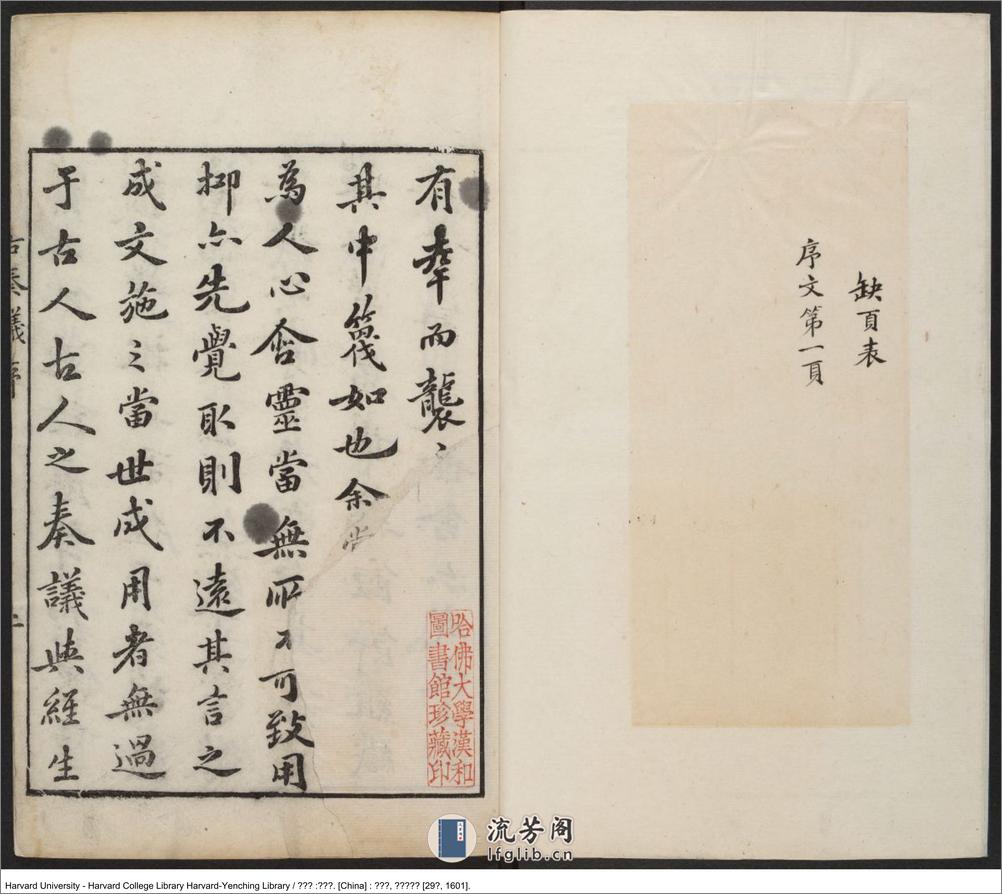 缺頁表
序文第一頁
有牽而襲〻
其中篾如也余
為人心含靈當無所不可致用
抑亦先覺取則不遠其言之
成文施之當世成用者無過
于古人古人之奏議與經生
古奏議序
哈佛大學漢和
圖書館珍藏印
流芳阁
lfglib.cn
Harvard University - Harvard College Library Harvard-Yenching Library / ??? :???. [China] : ???, ????? [29?, 1601].